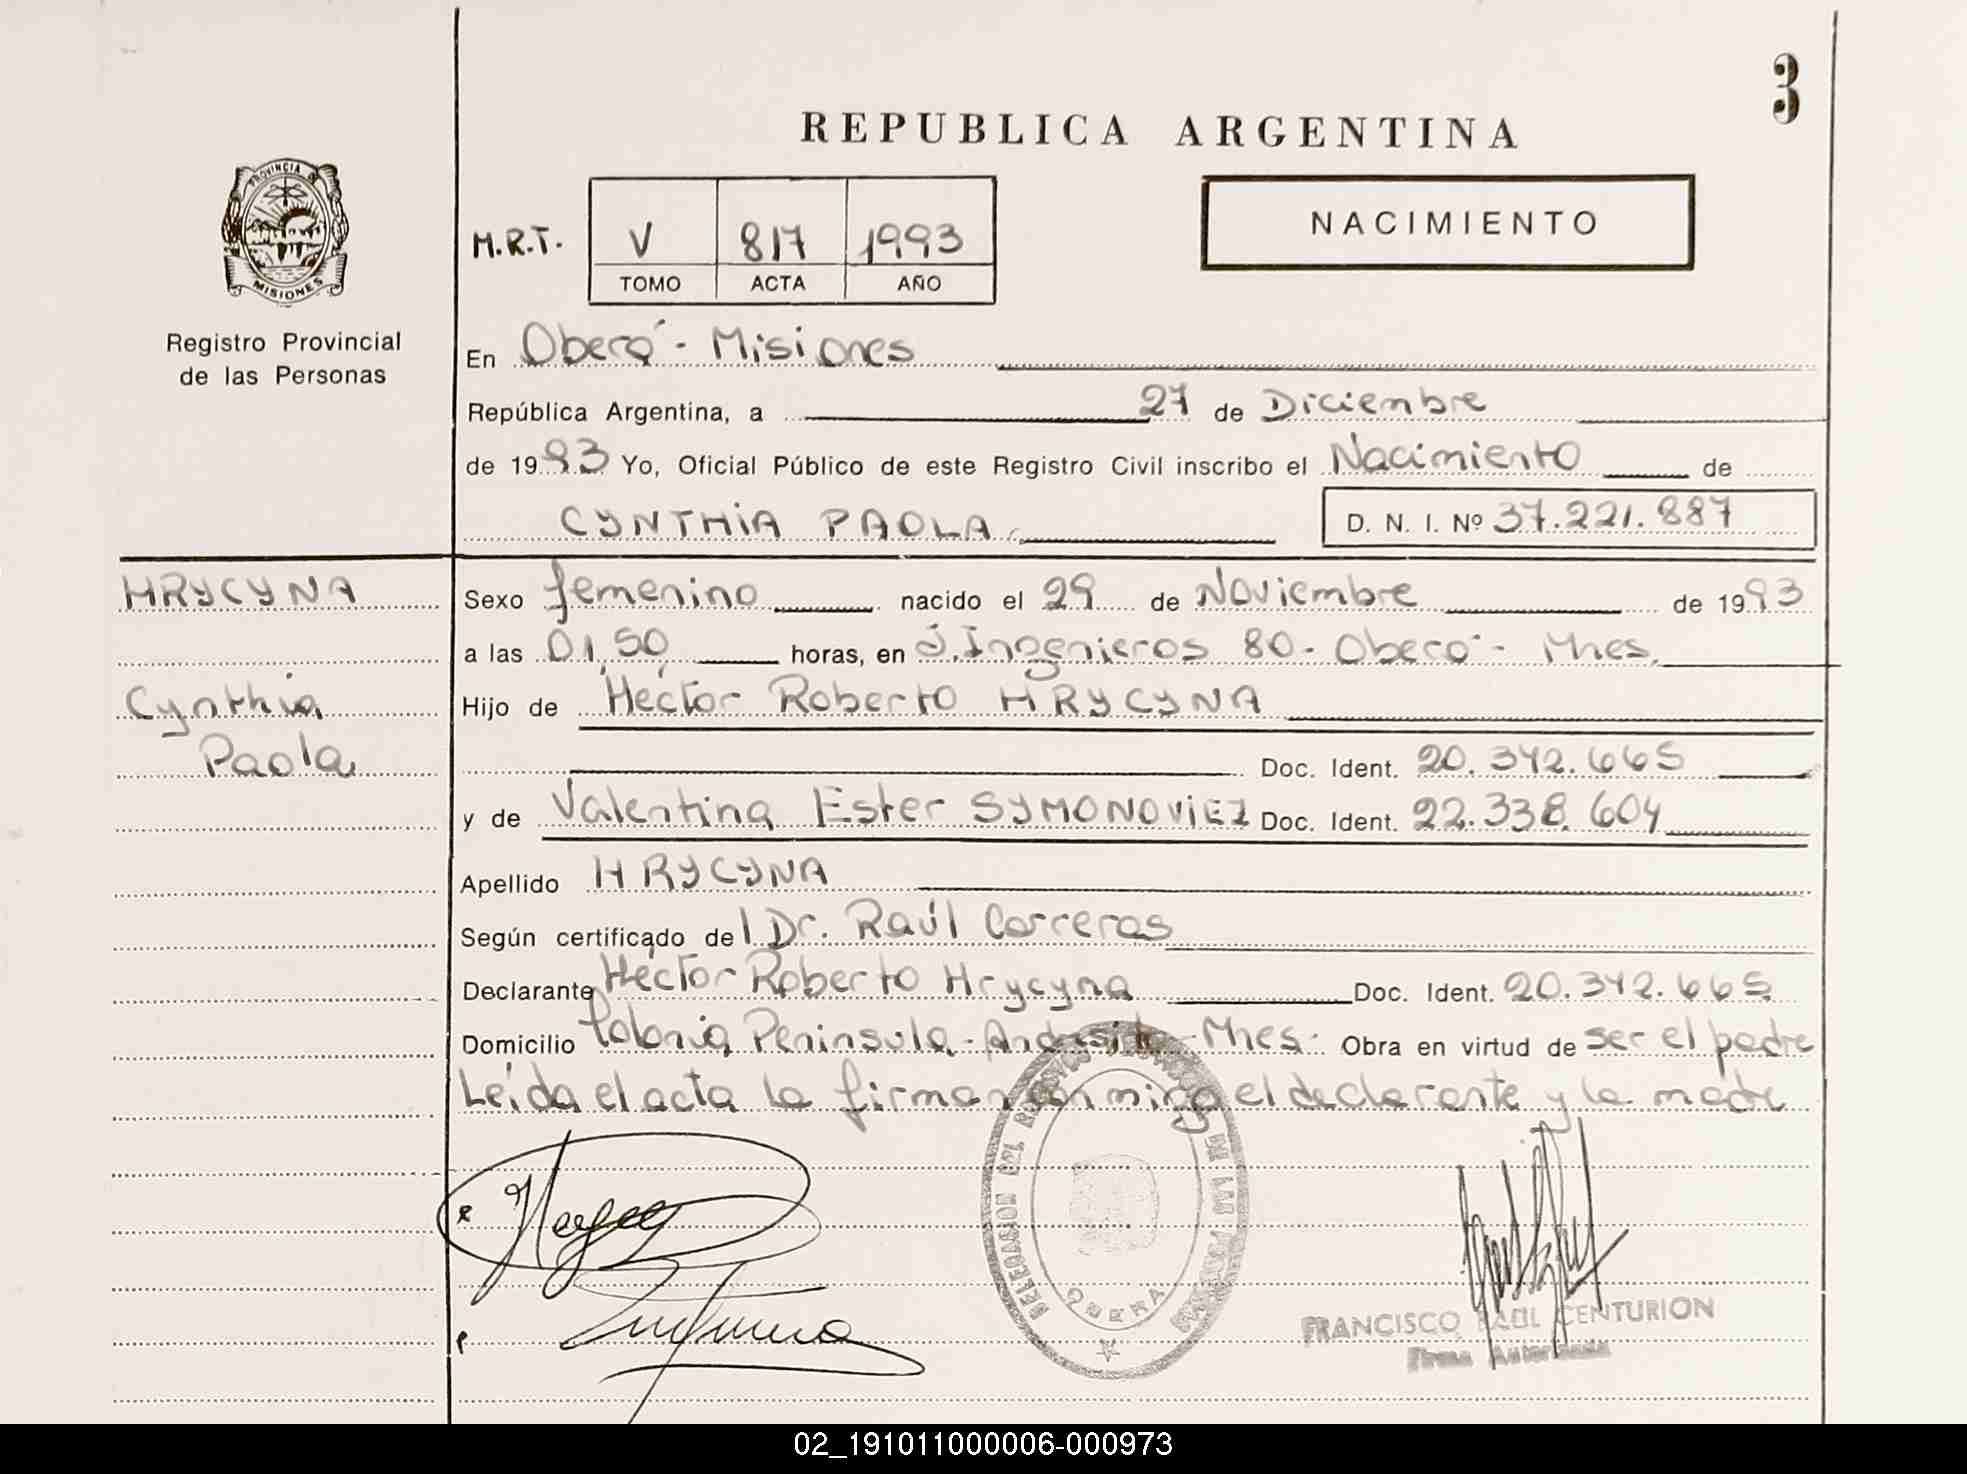 3
REPUBLICA ARGENTINA
PROVINCIA DE
MISIONES
Registro Provincial
de las Personas
NACIMIENTO
M.R.T. V 817 1993
TOMO ACTA AÑO
En Oberá - Misiones
República Argentina, a 27 de Diciembre
de 1993 Yo, Oficial Público de este Registro Civil inscribo el Nacimiento de
CYNTHIA PAOLA. D. N. I. Nº 37.221.887
HRYCYNA
Cynthia
Paola
Sexo femenino nacido el 29 de Noviembre de 1993
a las 01,50 horas, en J. Ingenieros 80 - Oberá - Mnes.
Hijo de Héctor Roberto HRYCYNA
Doc. Ident. 20.342.665
y de Valentina Ester SYMONOVIEZ Doc. Ident. 22.338.604
Apellido HRYCYNA
Según certificado del Dr. Raúl Carreras
Declarante Héctor Roberto Hrycyna Doc. Ident. 20.342.665
Domicilio Colonia Peninsula - Andresito - Mnes. Obra en virtud de ser el padre
Leída el acta la firman conmigo el declarante y la madre
DELEGACION DEL REGISTRO DE LAS PERSONAS
OBERA
FRANCISCO RAUL CENTURION
Firma Autorizada
02_191011000006-000973